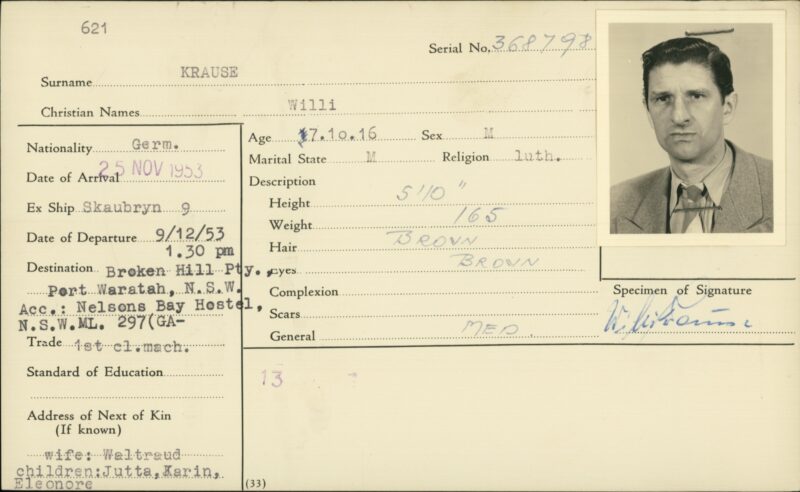 621
Serial No. 368798
Surname KRAUSE
Christian Names Willi
Nationality Germ.
Date of Arrival 25 NOV 1953
Ex Ship Skaubryn 9
Date of Departure 9/12/53
1.30 pm
Destination Broken Hill Pty.,
Port Waratah, N.S.W.
Acc.: Nelsons Bay Hostel,
N.S.W.ML. 297(GA-
Trade 1st cl.mach.
Standard of Education
Address of Next of Kin
(If known)
wife: Waltraud
children:Jutta,Karin,
Eleonore
Age 17.10.16 Sex M
Marital State M Religion luth.
Description
Height 5'10"
Weight 165
Hair BROWN
Eyes BROWN
Complexion
Scars
General MED.
13
(33)
Specimen of Signature
Willi Krause